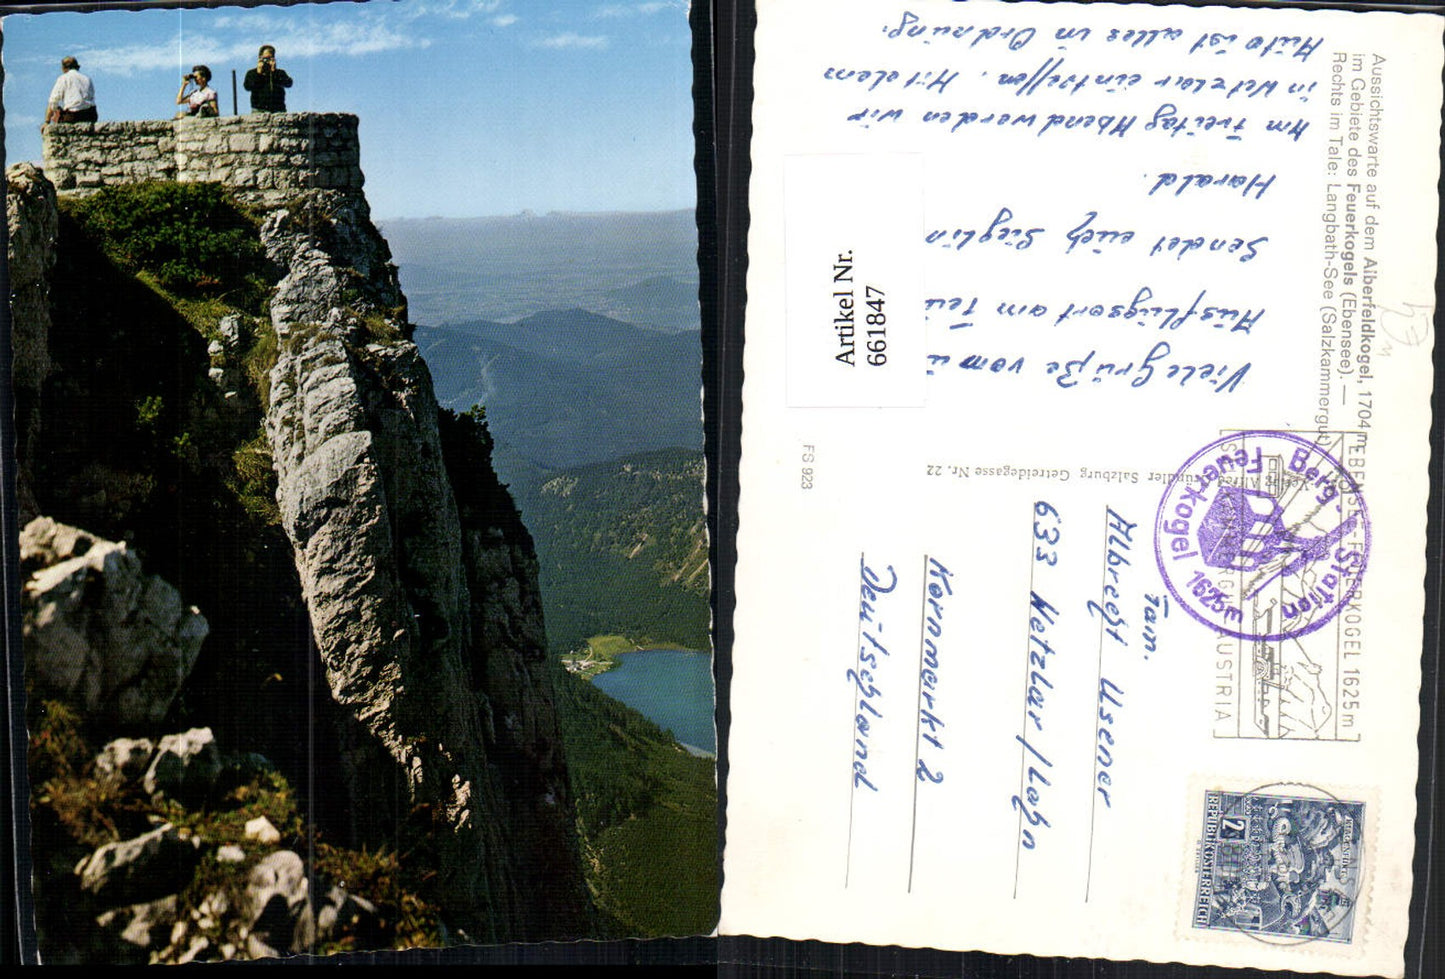 Aussichtswarte auf dem Alberfeldkogel, 1704 m
im Gebiete des Feuerkogels (Ebensee). —
Rechts im Tale: Langbath-See (Salzkammergut)
Viele Grüße vom
Ausflugsort am
Sendet euch Sieglin
Harald.
Am Freitag Abend werden wir
in Wetzlar eintreffen. Mit dem
Auto ist alles in Ordnung.
Artikel Nr.
661847
FS 923
Gründler Salzburg Getreidegasse Nr. 22
Berg-Station
Feuerkogel 1625m
FEUERKOGEL 1625 m
AUSTRIA
REPUBLIK ÖSTERREICH
2
KLAGENFURT
Fam.
Albrecht Usener
633 Wetzlar/Lahn
Kornmarkt 2
Deutschland